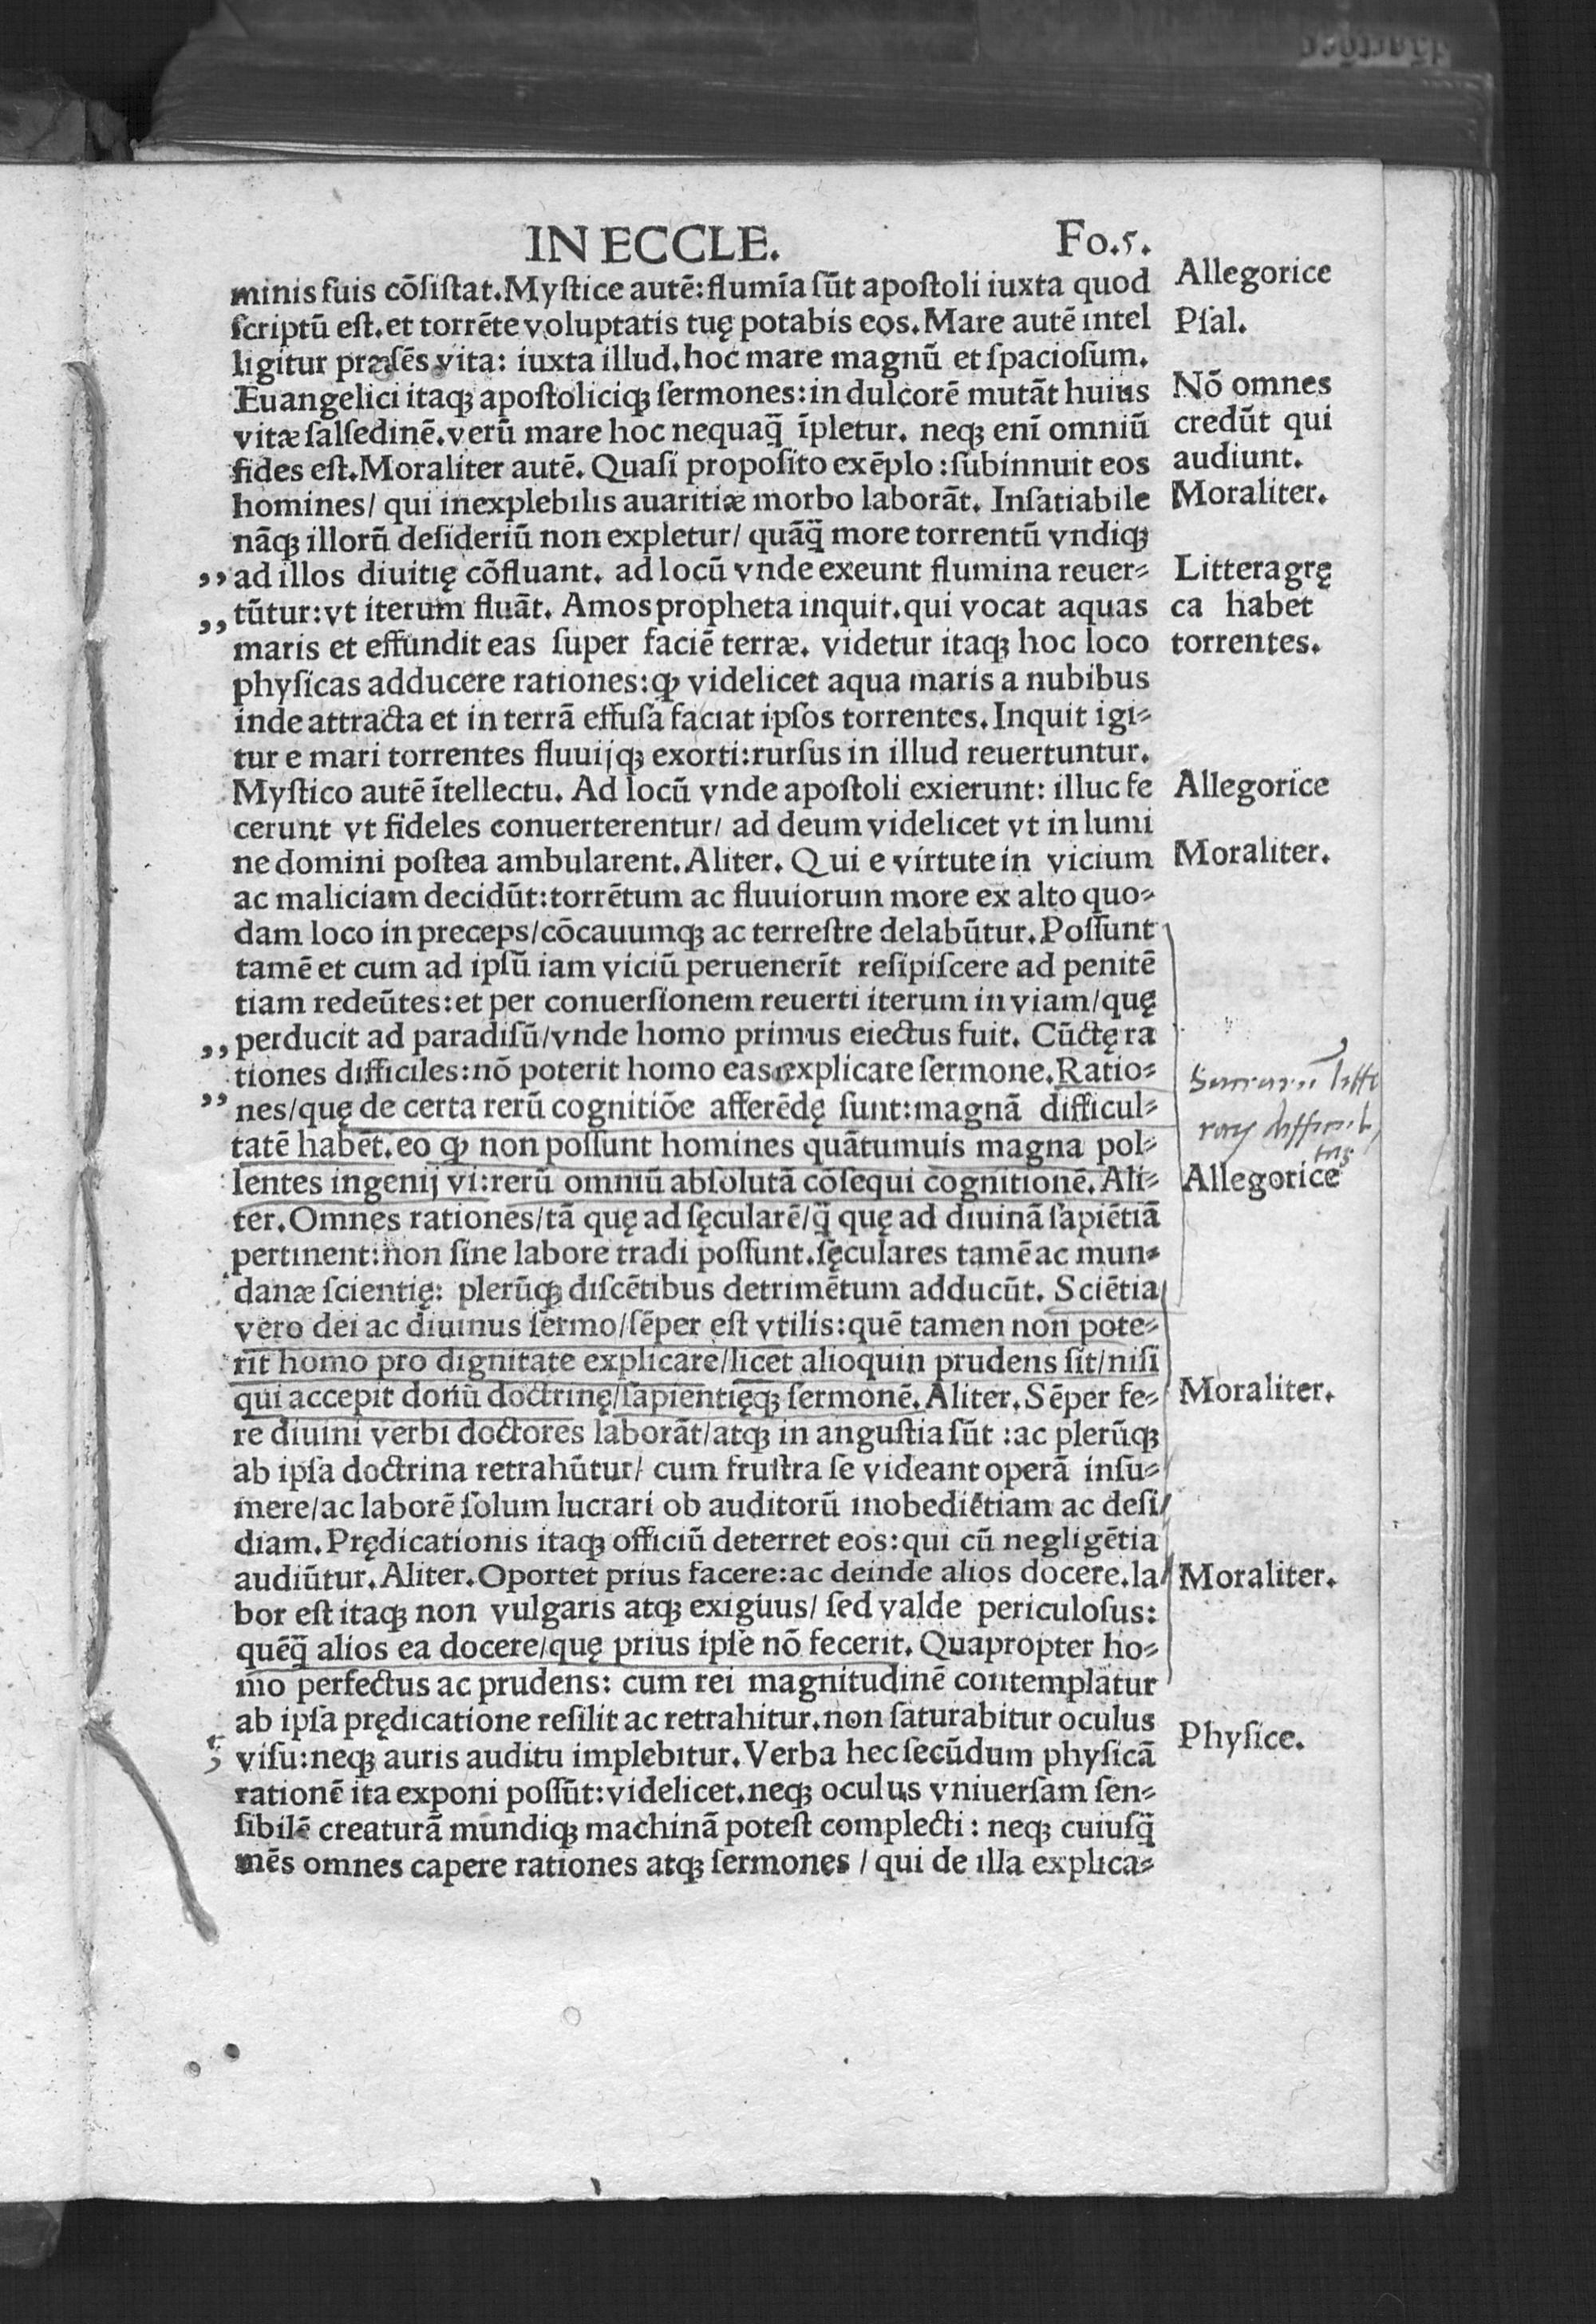 IN ECCLE. Fo.5.
minis suis cōsistat. Mystice autē: flumīa sūt apostoli iuxta quod
scriptū est. et torrēte voluptatis tuę potabis eos. Mare autē intel
ligitur præsēs vita: iuxta illud. hoc mare magnū et spaciosum.
Euangelici itaqꝫ apostoliciqꝫ sermones: in dulcorē mutāt huius
vitæ salsedinē. verū mare hoc nequaq̄ īpletur. neqꝫ enī omniū
fides est. Moraliter autē. Quasi proposito exēplo: subinnuit eos
homines/ qui inexplebilis auaritiæ morbo laborāt. Insatiabile
nāqꝫ illorū desideriū non expletur/ quāq̄ more torrentū vndiqꝫ
,, ad illos diuitię cōfluant. ad locū vnde exeunt flumina reuer⸗
,, tūtur: vt iterum fluāt. Amos propheta inquit. qui vocat aquas
maris et effundit eas super faciē terræ. videtur itaqꝫ hoc loco
physicas adducere rationes: ꝙ videlicet aqua maris a nubibus
inde attracta et in terrā effusa faciat ipsos torrentes. Inquit igi⸗
tur e mari torrentes fluuijqꝫ exorti: rursus in illud reuertuntur.
Mystico autē ītellectu. Ad locū vnde apostoli exierunt: illuc fe
cerunt vt fideles conuerterentur/ ad deum videlicet vt in lumi
ne domini postea ambularent. Aliter. Qui e virtute in vicium
ac maliciam decidūt: torrētum ac fluuiorum more ex alto quo⸗
dam loco in preceps/ cōcauumqꝫ ac terrestre delabūtur. Possunt
tamē et cum ad ipsū iam viciū peruenerīt resipiscere ad penitē
tiam redeūtes: et per conuersionem reuerti iterum in viam/ quę
,, perducit ad paradisū/ vnde homo primus eiectus fuit. Cūctę ra
tiones difficiles: nō poterit homo eas explicare sermone. Ratio⸗
,, nes/ quę de certa rerū cognitiōe afferēdę sunt: magnā difficul⸗
tatē habēt. eo ꝙ non possunt homines quātumuis magna pol⸗
lentes ingenij vi: rerū omniū absolutā cōsequi cognitionē. Ali⸗
ter. Omnes rationes/ tā quę ad sęcularē/ q̄ quę ad diuinā sapiētiā
pertinent: non sine labore tradi possunt. sęculares tamē ac mun⸗
danæ scientię: plerūqꝫ discētibus detrimētum adducūt. Sciētia
vero dei ac diuinus sermo/ sēper est vtilis: quē tamen non pote⸗
rit homo pro dignitate explicare/ licet alioquin prudens sit/ nisi
qui accepit donū doctrinę/ sapientięqꝫ sermonē. Aliter. Sēper fe⸗
re diuini verbi doctores laborāt/ atqꝫ in angustia sūt: ac plerūqꝫ
ab ipsa doctrina retrahūtur/ cum frustra se videant operā insu⸗
mere/ ac laborē solum lucrari ob auditorū inobediētiam ac desi
diam. Prędicationis itaqꝫ officiū deterret eos: qui cū negligētia
audiūtur. Aliter. Oportet prius facere: ac deinde alios docere. la
bor est itaqꝫ non vulgaris atqꝫ exiguus/ sed valde periculosus:
quēq̄ alios ea docere/ quę prius ipse nō fecerit. Quapropter ho⸗
mo perfectus ac prudens: cum rei magnitudinē contemplatur
ab ipsa prędicatione resilit ac retrahitur. non saturabitur oculus
visu: neqꝫ auris auditu implebitur. Verba hec secūdum physicā
rationē ita exponi possūt: videlicet. neqꝫ oculus vniuersam sen⸗
sibilē creaturā mundiqꝫ machinā potest complecti: neqꝫ cuiusq̄
mēs omnes capere rationes atqꝫ sermones / qui de illa explica⸗
Allegorice
Psal.
Nō omnes
credūt qui
audiunt.
Moraliter.
Littera grę
ca habet
torrentes.
Allegorice
Moraliter.
Allegorice
Moraliter.
Moraliter.
Physice.